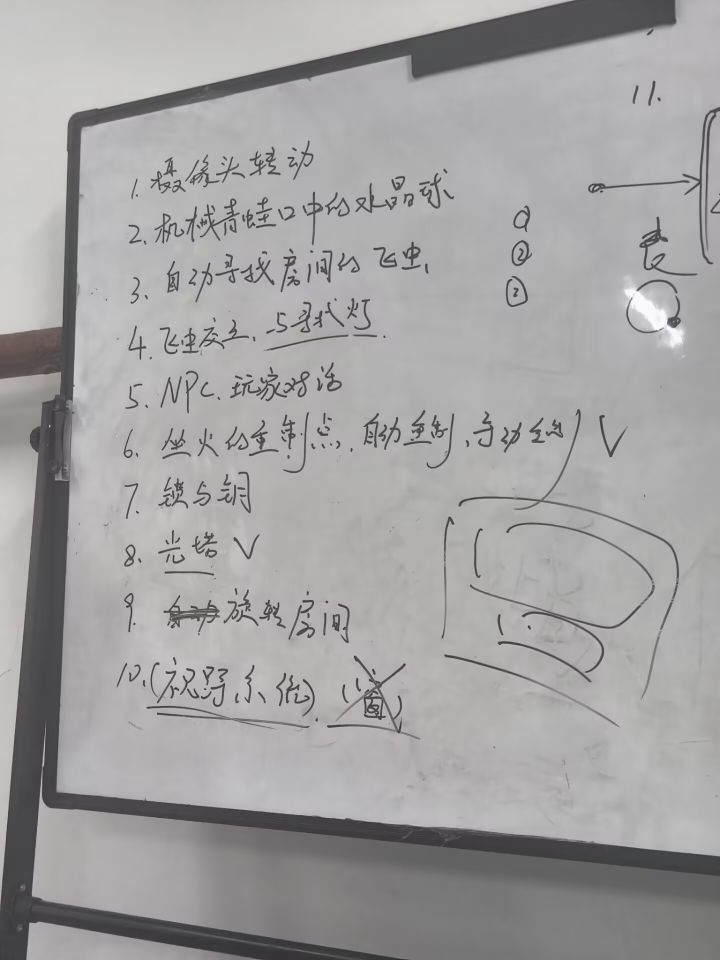 1. 摄像头转动
2. 机械青蛙口中的水晶球
3. 自动寻找房间的飞虫
4. 飞虫交互、与寻找灯
5. NPC、玩家对话
6. 坐火的重制点、自动重制、手动
7. 锁与钥
8. 光塔 V
9. 旋转房间
10. (视野系统)
11.
①
②
③
V